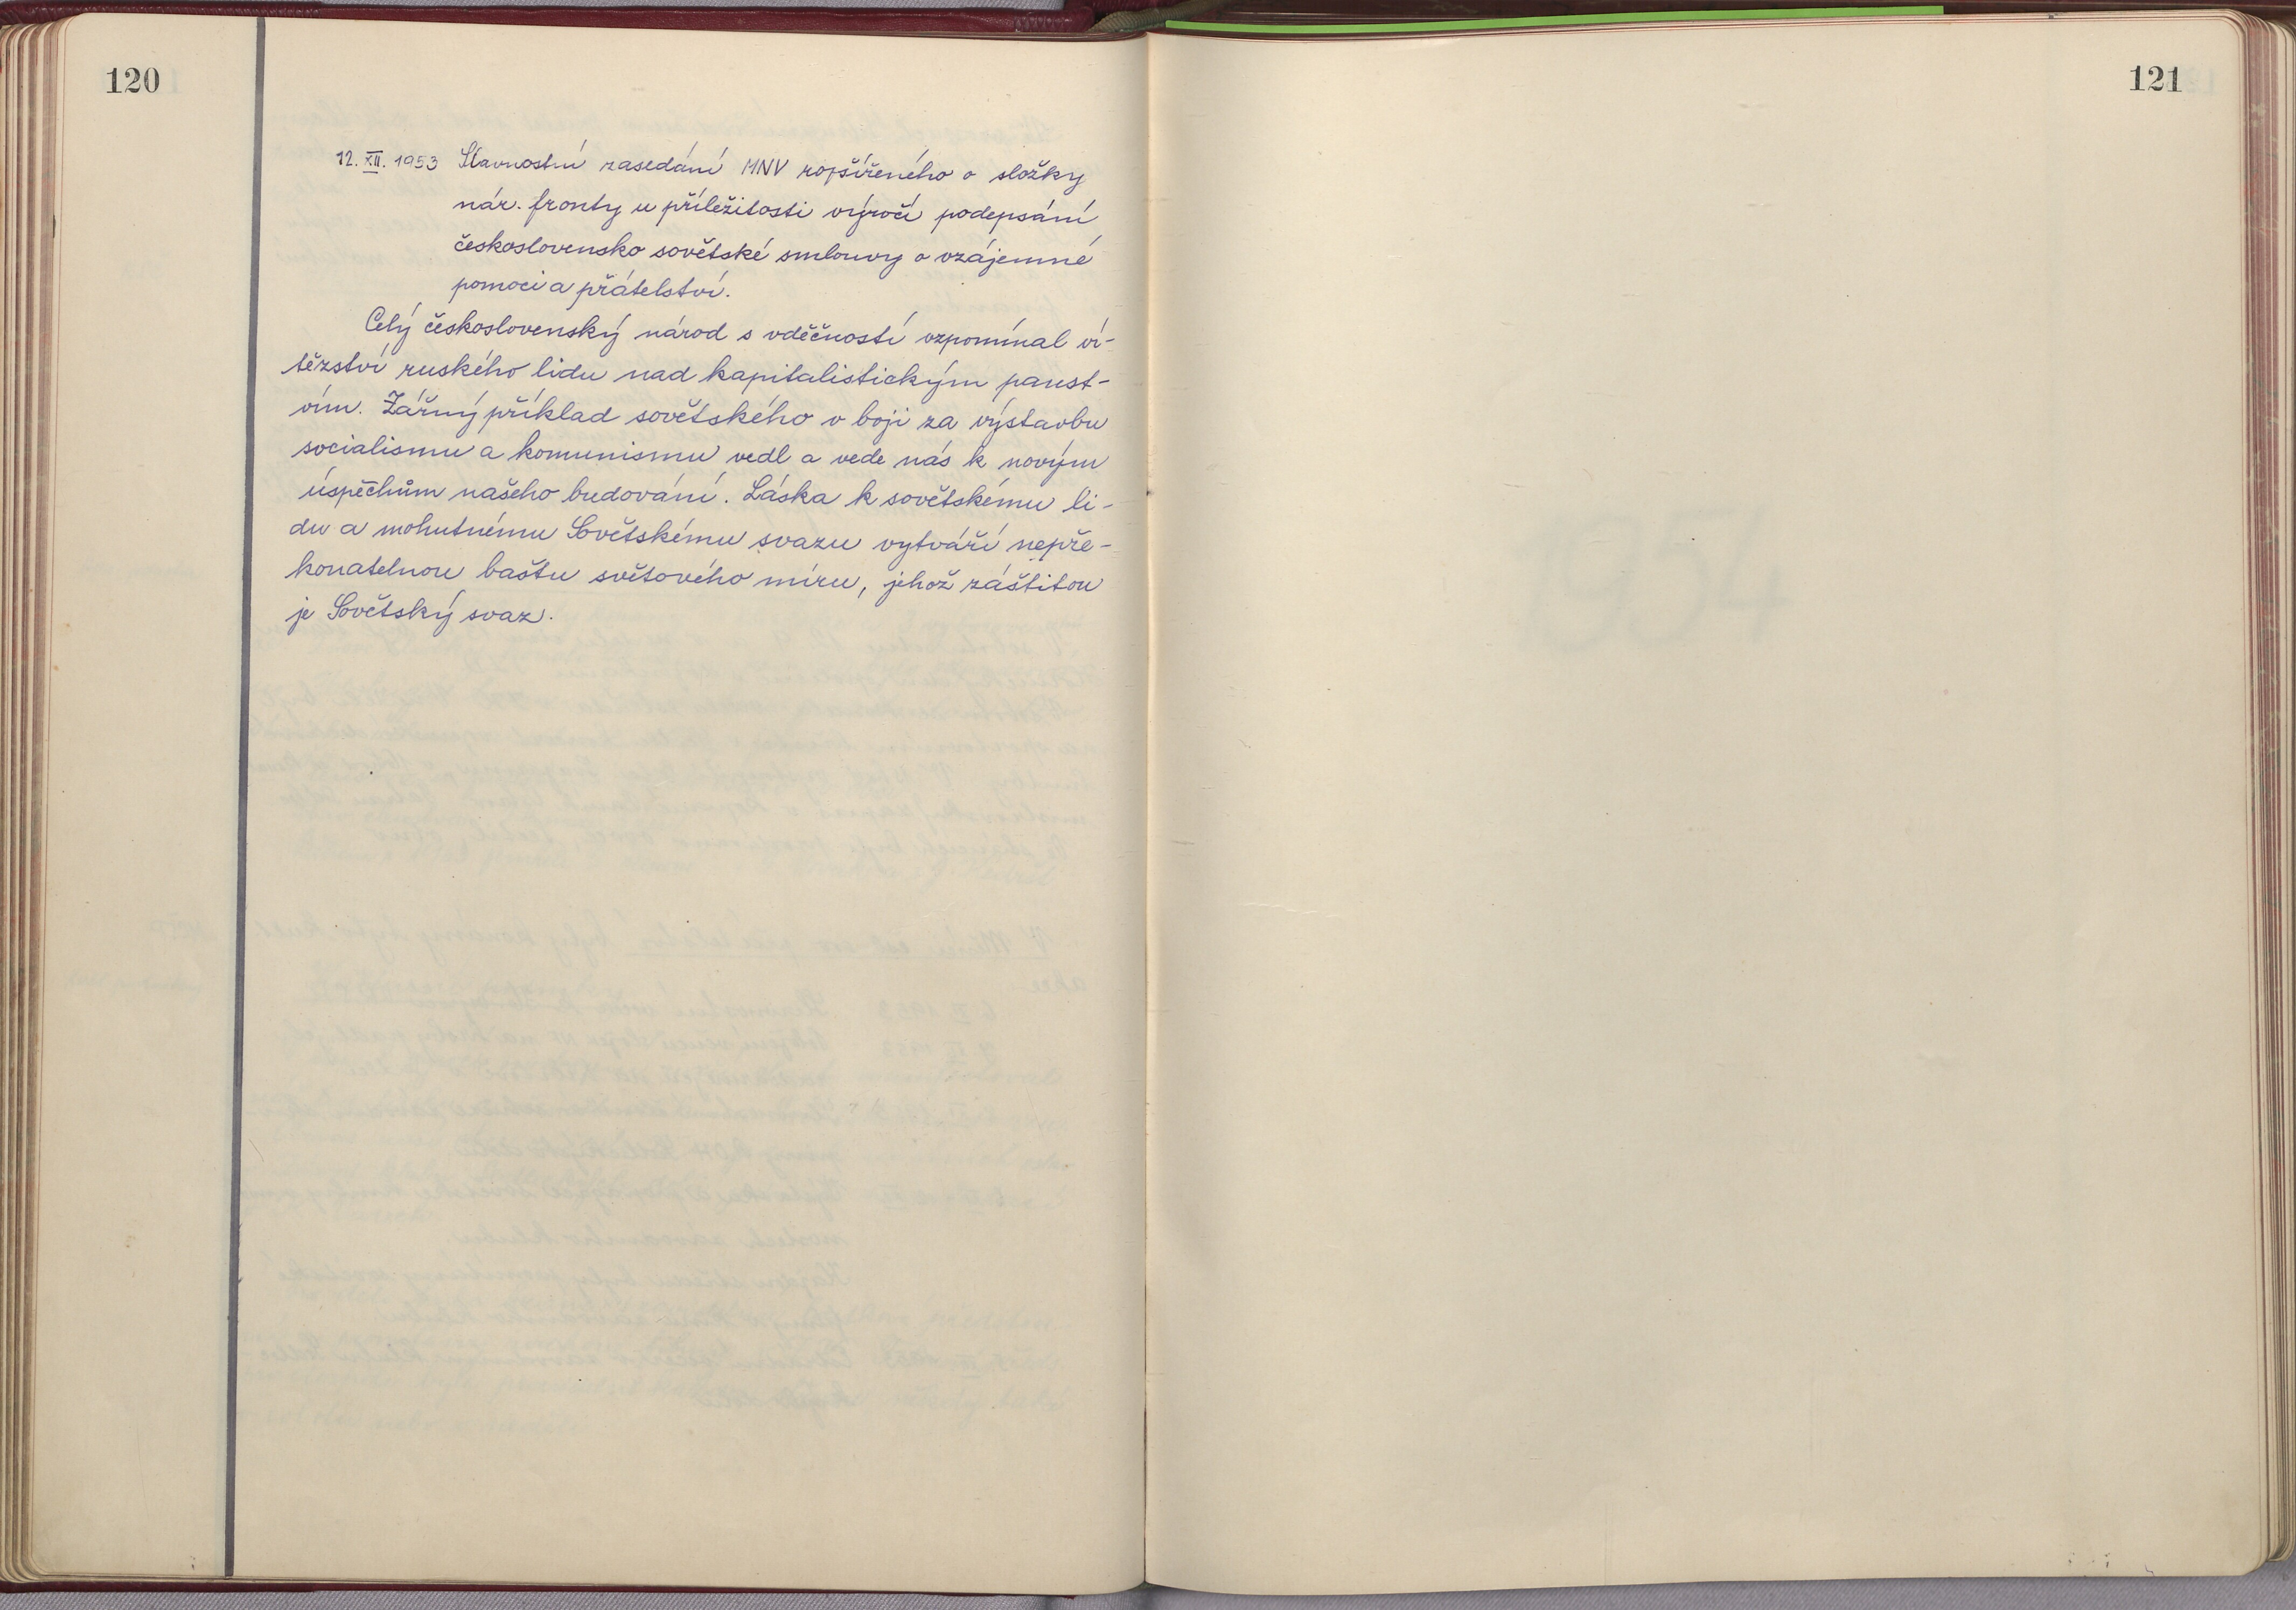 120
12. XII. 1953 Slavnostní zasedání MNV ropšířeného o složky
nár. fronty u příležitosti výročí podepsání
československo sovětské smlouvy o vzájemné
pomoci a přátelství.
Celý československý národ s vděčností vzpomínal ví-
tězství ruského lidu nad kapitalistickým panst-
vím. Zářný příklad sovětského v boji za výstavbu
socialismu a komunismu vedl a vede nás k novým
úspěchům našeho budování. Láska k sovětskému li-
du a mohutnému Sovětskému svazu vytváří nepře-
konatelnou baštu světového míru, jehož záštitou
je Sovětský svaz.
121